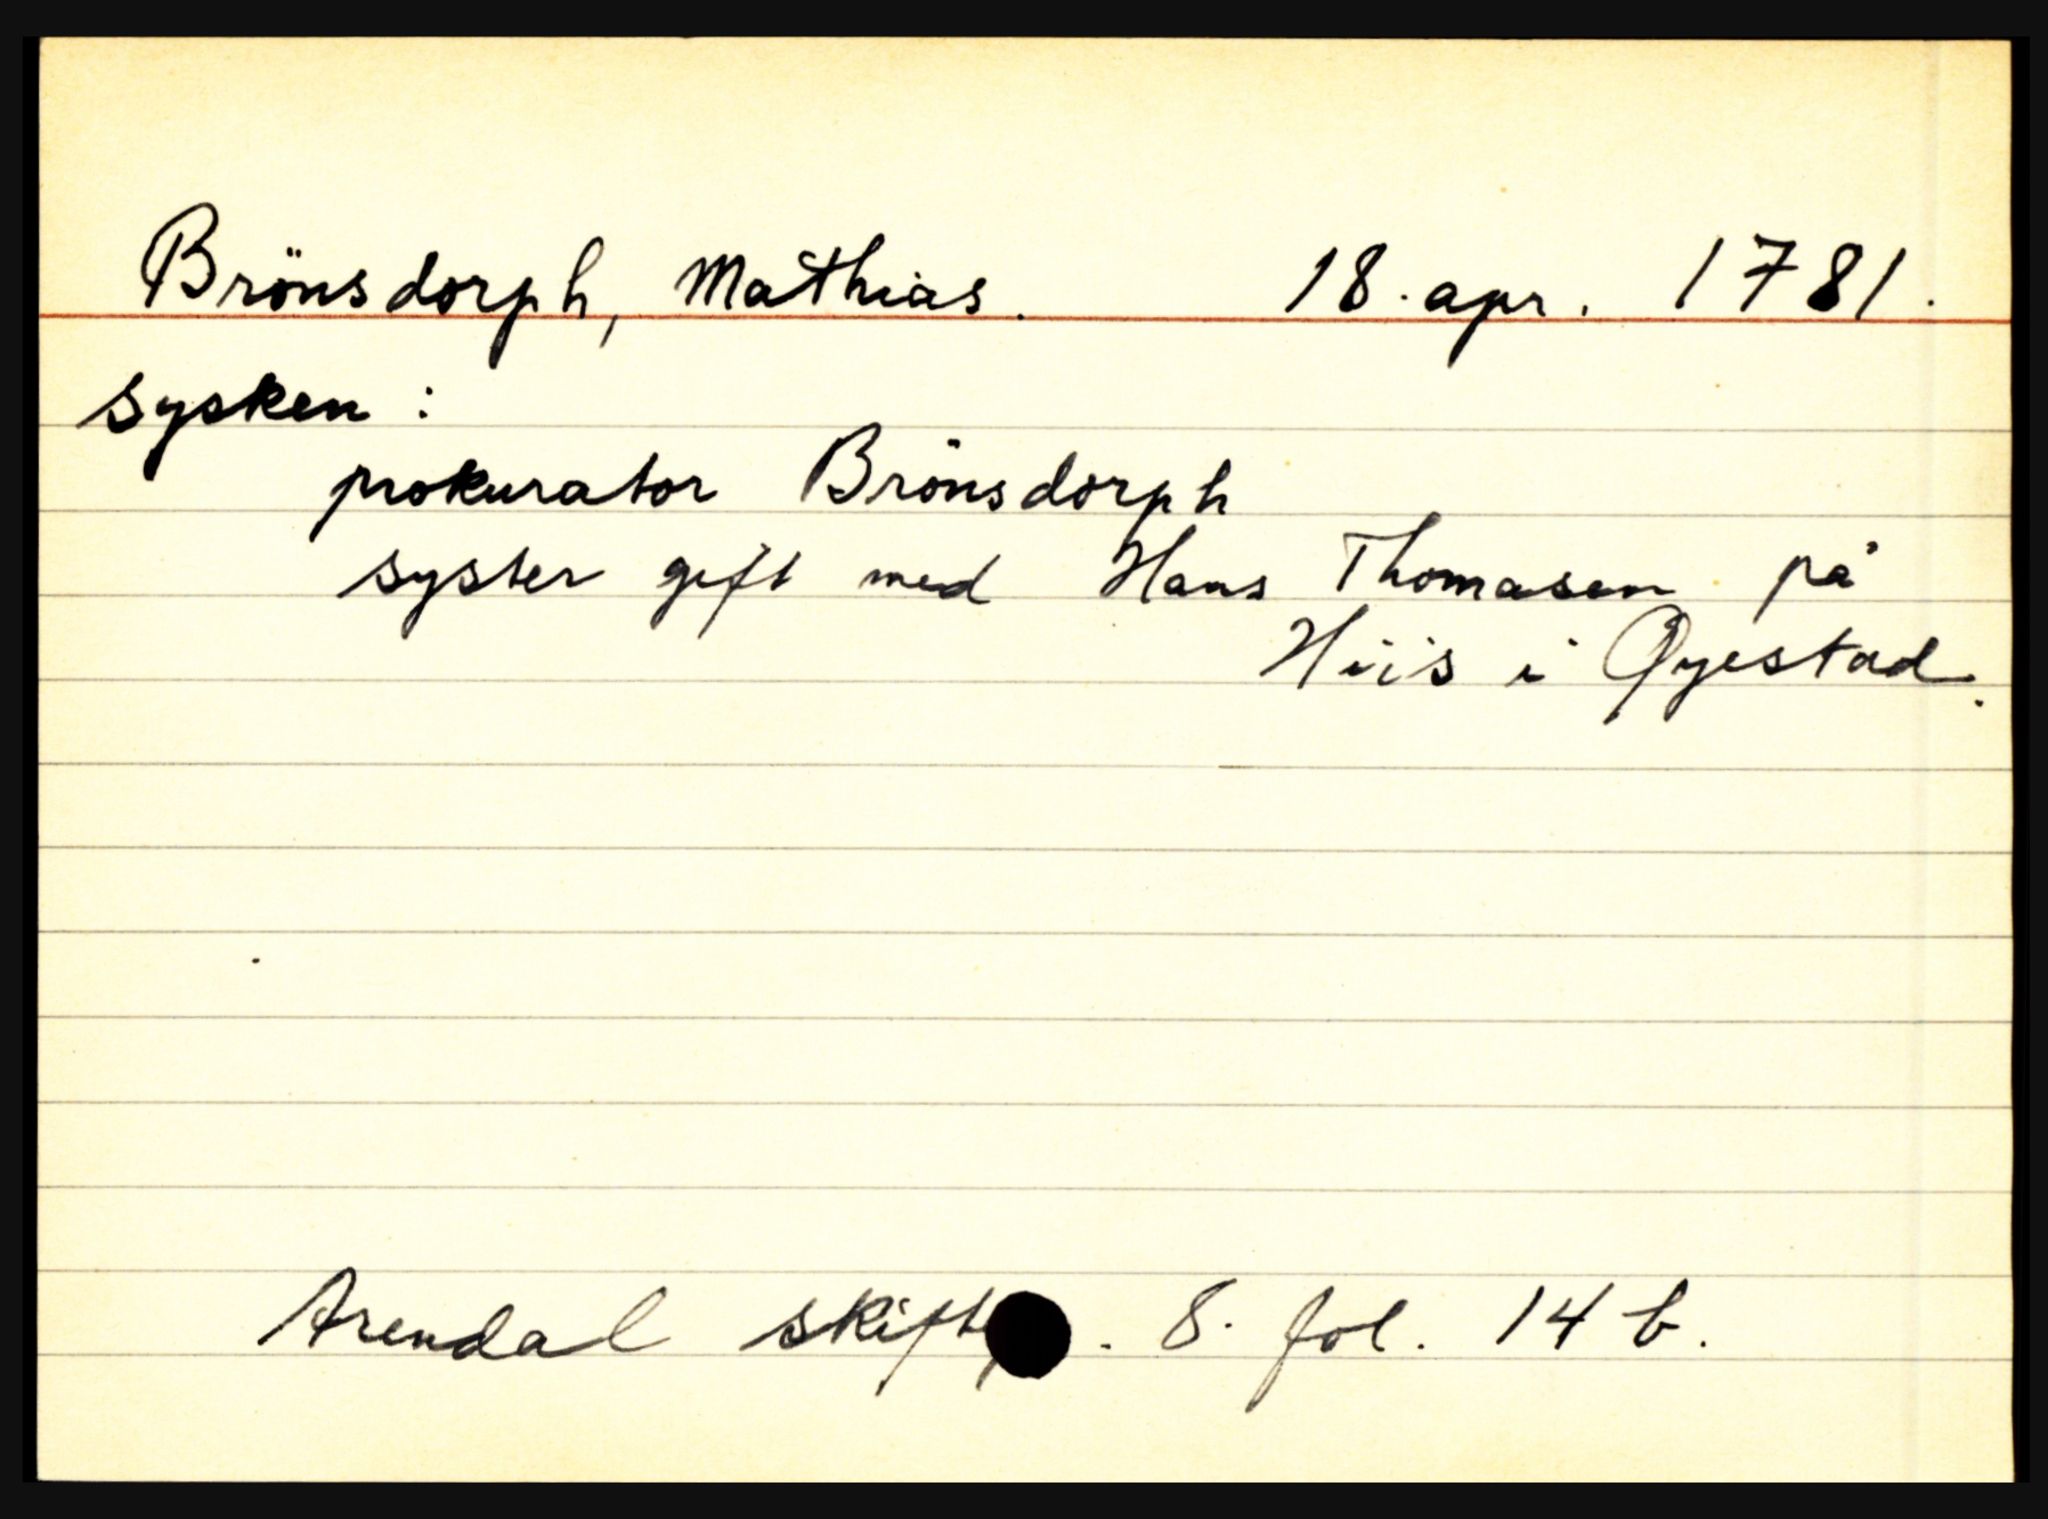 Brönsdorph, Mathias. 18. apr. 1781.
sysken:
prokurator Brönsdorph
syster gift med Hans Thomasen på
Hiis i Øyestad.
Arendal . 8. fol. 14 b.